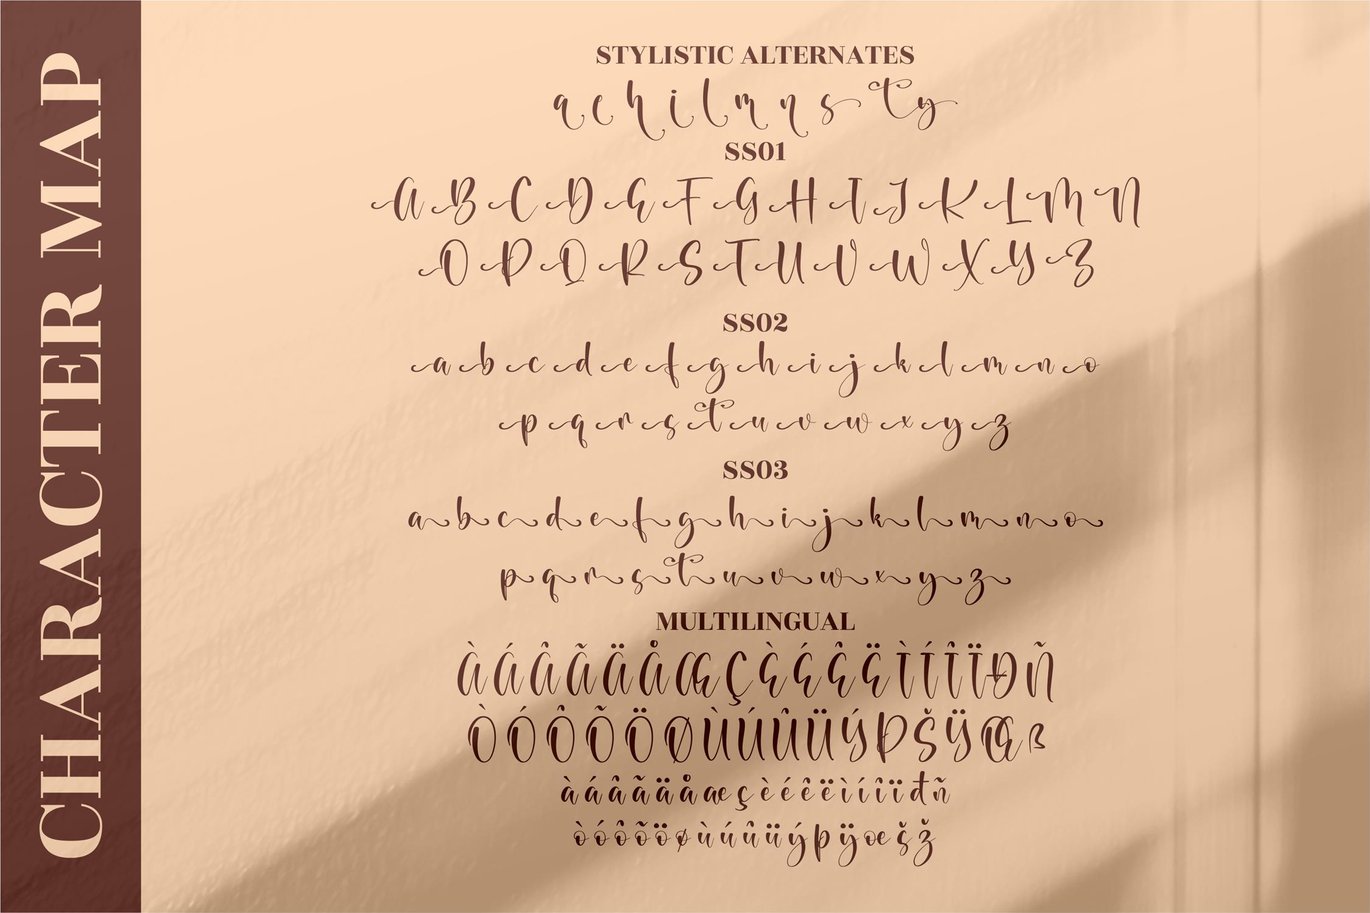 CHARACTER MAP
STYLISTIC ALTERNATES
a c h i l m n s t y
SS01
A B C D E F G H I J K L M N
O P Q R S T U V W X Y Z
SS02
a b c d e f g h i j k l m n o
p q r s t u v w x y z
SS03
a b c d e f g h i j k l m n o
p q r s t u v w x y z
MULTILINGUAL
À Á Â Ã Ä Å Æ Ç È É Ê Ë Ì Í Î Ï Ð Ñ
Ò Ó Ô Õ Ö Ø Ù Ú Û Ü Ý Þ Š Ÿ Œ ß
à á â ã ä å æ ç è é ê ë ì í î ï đ ñ
ò ó ô õ ö ø ù ú û ü ý þ ÿ œ š ž